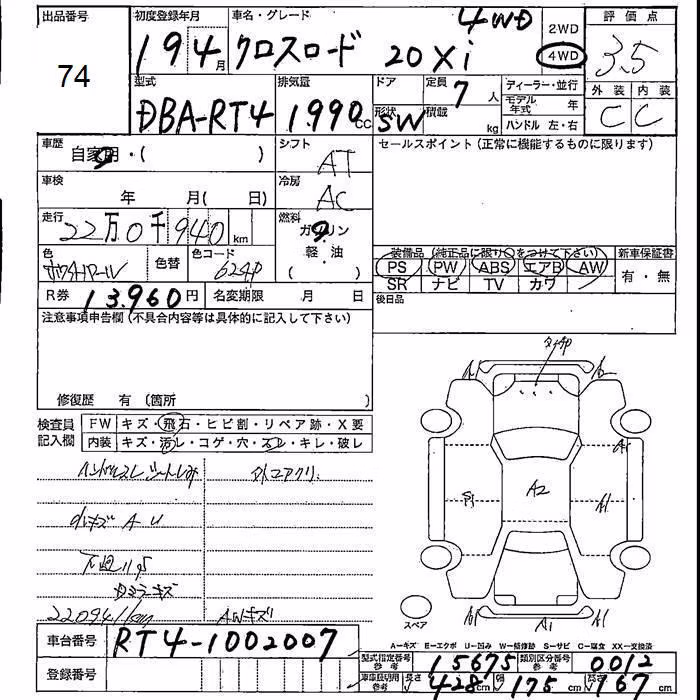 出品番号 初度登録年月 車名・グレード 4WD 2WD 評価点
74 19 4月 クロスロード 20Xi 4WD 3.5
型式 排気量 ドア 定員 7人 ディーラー・並行 外装 内装
DBA-RT4 1990cc 形状 SW 積載 kg モデル年式 年 C C
ハンドル 左・右
車歴 自家用・( ) シフト AT セールスポイント(正常に機能するものに限ります)
車検 年 月( 日) 冷房 AC
走行 22万0千940km 燃料 ガソリン
軽・油
( )
色 色替 色コード 624P
装備品(純正品に限り○をつけて下さい) 新車保証書
PS PW ABS エアB AW 有・無
SR ナビ TV カワ
R券 13,960円 名変期限 月 日 後日品
注意事項申告欄(不具合内容等は具体的に記入して下さい)
修復歴 有 (箇所 )
検査員記入欄 FW キズ・飛石・ヒビ割・リペア跡・X要
内装 キズ・汚レ・コゲ・穴・スレ・キレ・破レ
A1 A1
A2 A1
ハンドルスレ シートしみ
A U
下廻りサビ
220941km AWキズ
スペア A1
車台番号 RT4-1002007
A=キズ E=エクボ U=凹み W=補修跡 S=サビ C=腐食 XX=交換済
登録番号
型式指定番号 参考 15675 類別区分番号 参考 0012
車庫証明用 参考 長さ 428cm 幅 175cm 高さ 167cm